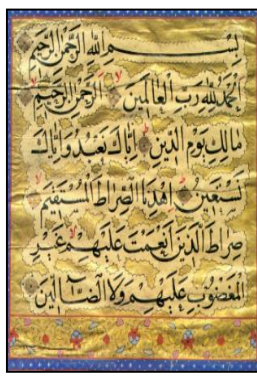 بِسْمِ اللهِ الرَّحْمٰنِ الرَّحِيمِ
اَلْحَمْدُ لِلّٰهِ رَبِّ الْعَالَمِينَ الرَّحْمٰنِ الرَّحِيمِ
مَالِكِ يَوْمِ الدِّينِ اِيَّاكَ نَعْبُدُ وَاِيَّاكَ
نَسْتَعِينُ اِهْدِنَا الصِّرَاطَ الْمُسْتَقِيمَ
صِرَاطَ الَّذِينَ اَنْعَمْتَ عَلَيْهِمْ غَيْرِ
الْمَغْضُوبِ عَلَيْهِمْ وَلَا الضَّالِّينَ